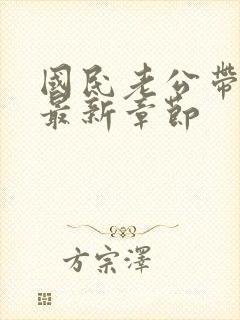 國民老公帶
最新章節
方宗澤